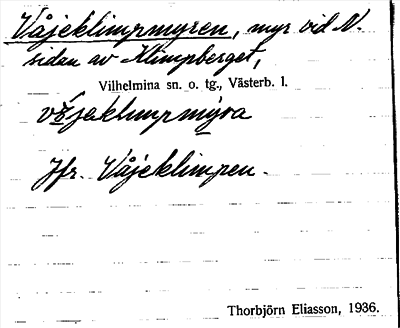 Våjeklimpmyren, myr vid N.
sidan av Klimpberget,
Vilhelmina sn. o. tg., Västerb. l.
våjeklimpmyra
Jfr. Våjeklimpen.
Thorbjörn Eliasson, 1936.